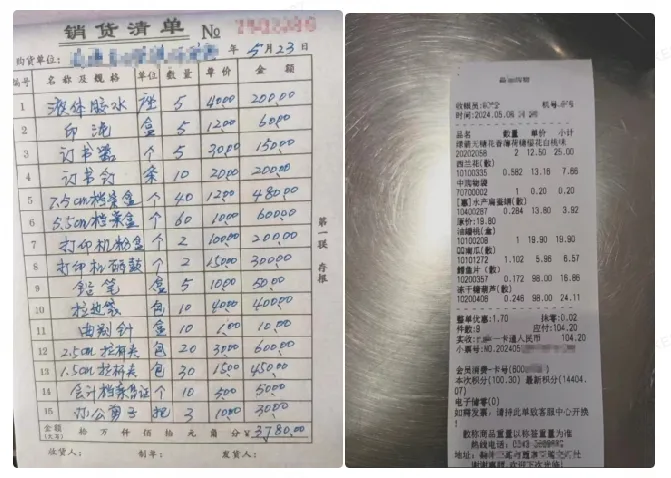 销货清单 №
购货单位: 年 5 月 23 日
编号 名称及规格 单位 数量 单价 金额
1 液体胶水 5 4000 200.00
2 印泥 盒 5 1200 60.00
3 订书器 个 5 3000 150.00
4 订书钉 10 2000 200.00
5 7.5cm档案盒 个 40 1200 480.00
6 5.5cm档案盒 个 60 1000 60000
7 打印机粉盒 个 2 10000 200.00
8 打印机硒鼓 个 2 15000 30000
9 铅笔 盒 5 1000 50.00
10 拉边袋 包 10 4000 40000
11 曲别针 盒 10 1.00 10.00
12 2.5cm拉杆夹 包 20 3000 60000
13 1.5cm拉杆夹 包 30 1500 45000
14 会计档案 个 10 500 5000
15 办公剪子 把 3 1000 3000
金额(大写) 拾 万 仟 佰 拾 元 角 分 ¥ 3780.00
收货人: 制单: 发货人:
第一联 存根
收银员: 机号:
时间:2024.05.0
品名 数量 单价 小计
绿箭无糖花香薄荷糖樱花白桃味
20202058 2 12.50 25.00
西兰花(散)
10100335 0.582 13.16 7.66
中购物袋
70700002 1 0.20 0.20
[惠]水产扁蚕蛹(散)
10400287 0.284 13.80 3.92
原价:19.80
油蟠桃(盒)
10100208 1 19.90 19.90
南瓜(散)
10101272 1.102 5.98 6.57
鳕鱼片(散)
10200357 0.172 98.00 16.86
冻干糖葫芦(散)
10200408 0.246 98.00 24.11
整单优惠:1.70 抹零:0.02
件数:9 应付:104.20
实收: 一卡通人民币 104.20
小票号:NO.202405
会员消费-卡号(600
本次积分(100.30) 最新积分(14404.
07)
电子储零(0)
如需发票,请持此单致客服中心开换
!
散称商品重量以标签重量为准
热线电话:
地址:
谢谢惠顾,欢迎下次光临